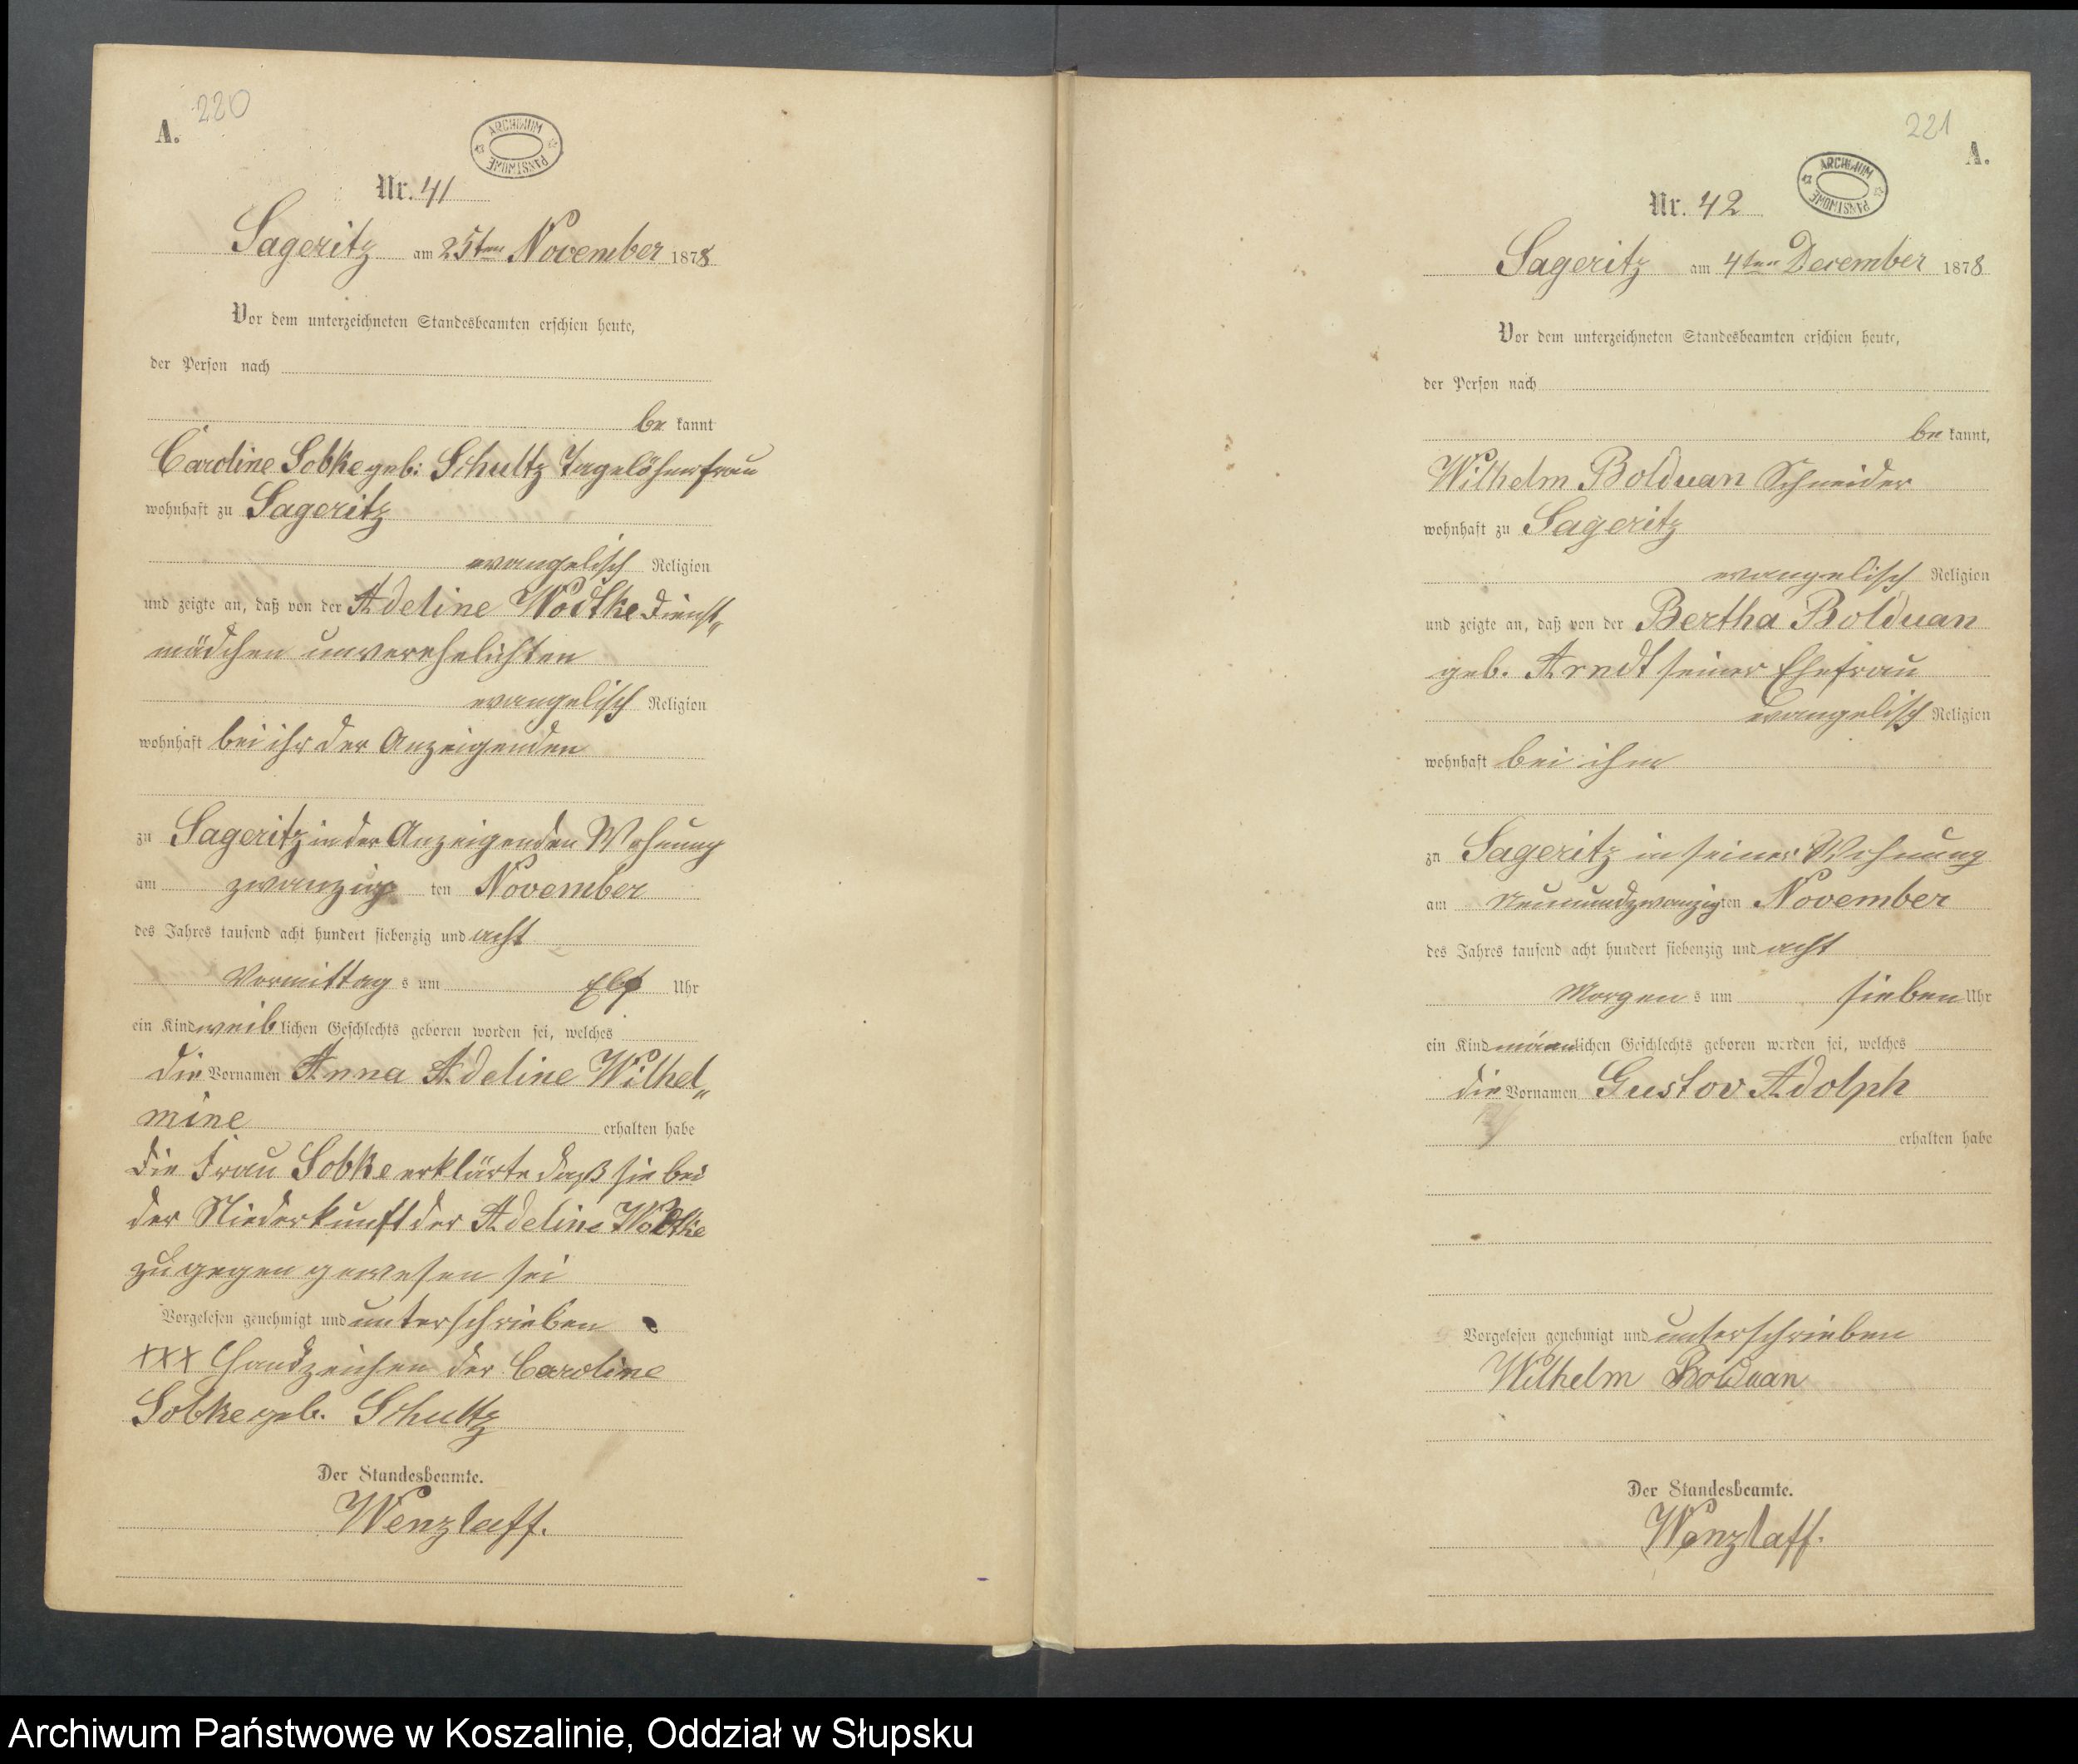 220
A.
ARCHIWUM PAŃSTWOWE
Nr. 41
Sageritz am 25ten November 1878
Vor dem unterzeichneten Standesbeamten erschien heute,
der Person nach
be kannt
Caroline Sobke geb: Schultz Tagelöhnerfrau
wohnhaft zu Sageritz
evangelisch Religion
und zeigte an, daß von der Adeline Wodtke Dienst„
mädchen unverehelichten
evangelisch Religion
wohnhaft bei ihr der Anzeigenden
zu Sageritz in der Anzeigenden Wohnung
am zwanzig ten November
des Jahres tausend acht hundert siebenzig und acht
Vormittag s um Elf Uhr
ein Kind weiblichen Geschlechts geboren worden sei, welches
die Vornamen Anna Adeline Wilhel„
mine erhalten habe
Die Frau Sobke erklärte daß sie bei
der Niederkunft der Adeline Wodtke
zugegen gewesen sei
Vorgelesen genehmigt und unterschrieben
XXX Handzeichen der Caroline
Sobke geb. Schultz
Der Standesbeamte.
Wenzlaff.
221
A.
ARCHIWUM PAŃSTWOWE
Nr. 42
Sageritz am 4ten December 1878
Vor dem unterzeichneten Standesbeamten erschien heute,
der Person nach
be kannt,
Wilhelm Bolduan Schneider
wohnhaft zu Sageritz
evangelisch Religion
und zeigte an, daß von der Bertha Bolduan
geb. Arndt seiner Ehefrau
evangelisch Religion
wohnhaft bei ihm
zu Sageritz in seiner Wohnung
am neunundzwanzigten November
des Jahres tausend acht hundert siebenzig und acht
Morgen s um sieben Uhr
ein Kind männlichen Geschlechts geboren worden sei, welches
die Vornamen Gustov Adolph
erhalten habe
Vorgelesen genehmigt und unterschrieben
Wilhelm Bolduan
Der Standesbeamte.
Wenzlaff.
Archiwum Państwowe w Koszalinie, Oddział w Słupsku